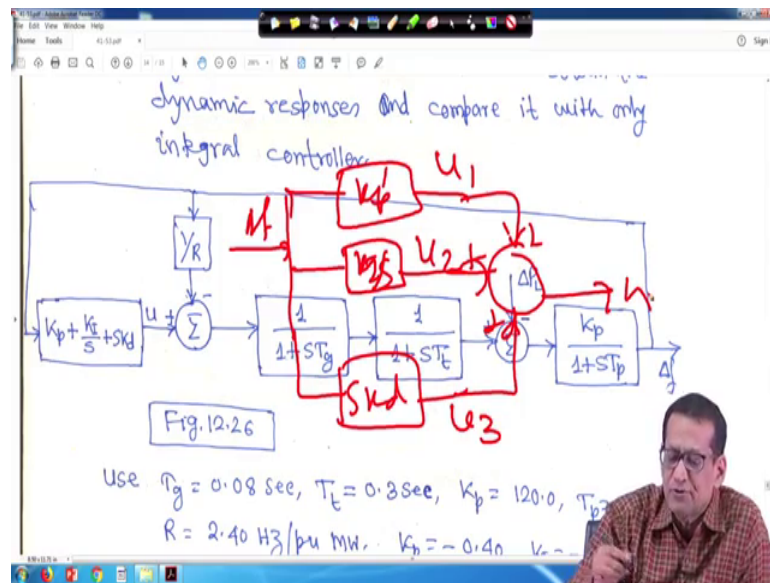 41-53.pdf - Adobe Acrobat Reader DC
File Edit View Window Help
Home Tools 41-53.pdf × Sign
dynamic responses and compare it with only
integral controller.
Kp' U1
1/R Δf
KI/S U2 + ΔPL
Kp + KI/S + SKd U + Σ - 1/1+STg 1/1+STt + Σ - Kp/1+STp Δf
SKd U3
Fig. 12.26
use Tg = 0.08 sec, Tt = 0.3 sec, Kp = 120.0, Tp =
R = 2.40 Hz/pu MW. Kp = -0.40